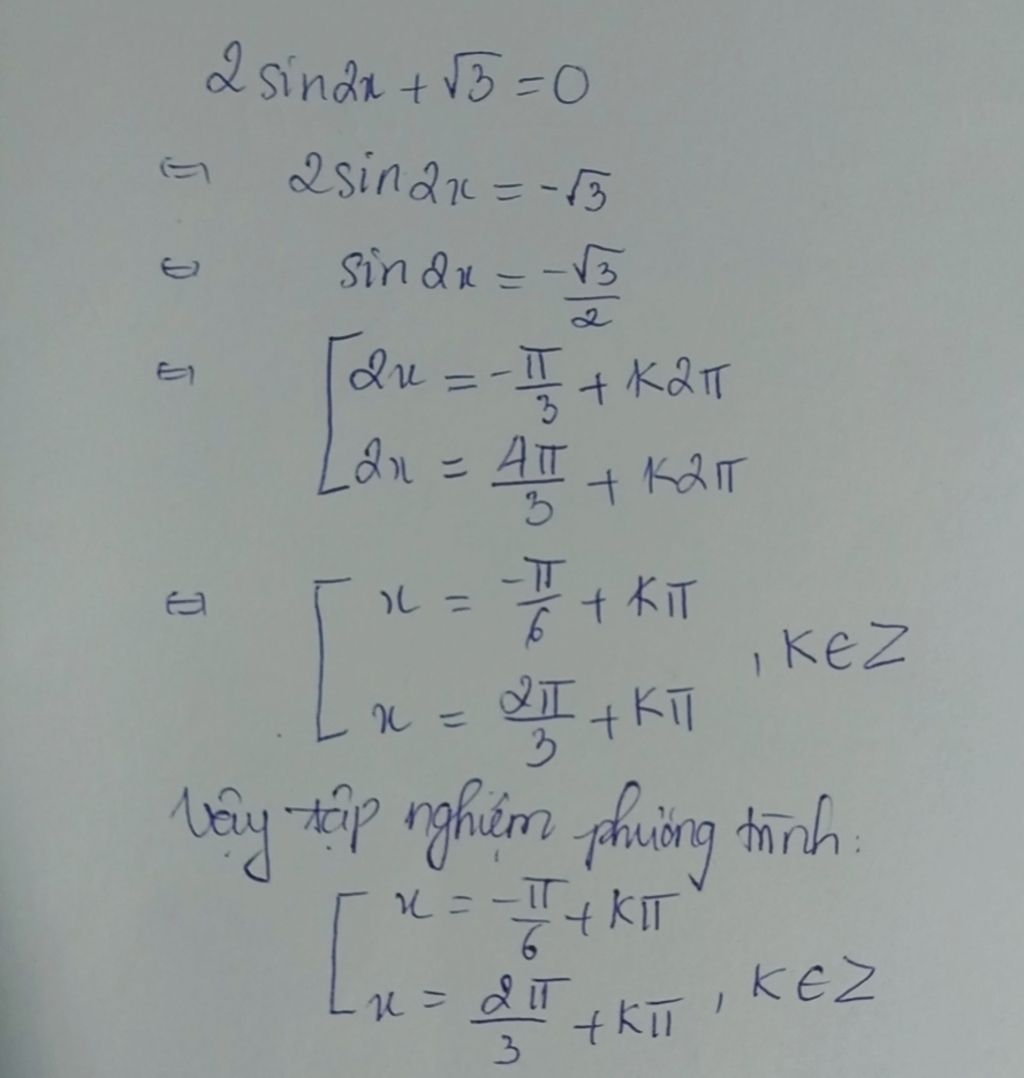 2 sin2x + √3 = 0
⇔ 2 sin 2x = -√3
⇔ sin 2x = -√3/2
⇔ [ 2x = -π/3 + K2π
2x = 4π/3 + K2π
⇔ [ x = -π/6 + Kπ
x = 2π/3 + Kπ , K∈Z
Vậy tập nghiệm phương trình:
[ x = -π/6 + Kπ
x = 2π/3 + Kπ , K∈Z